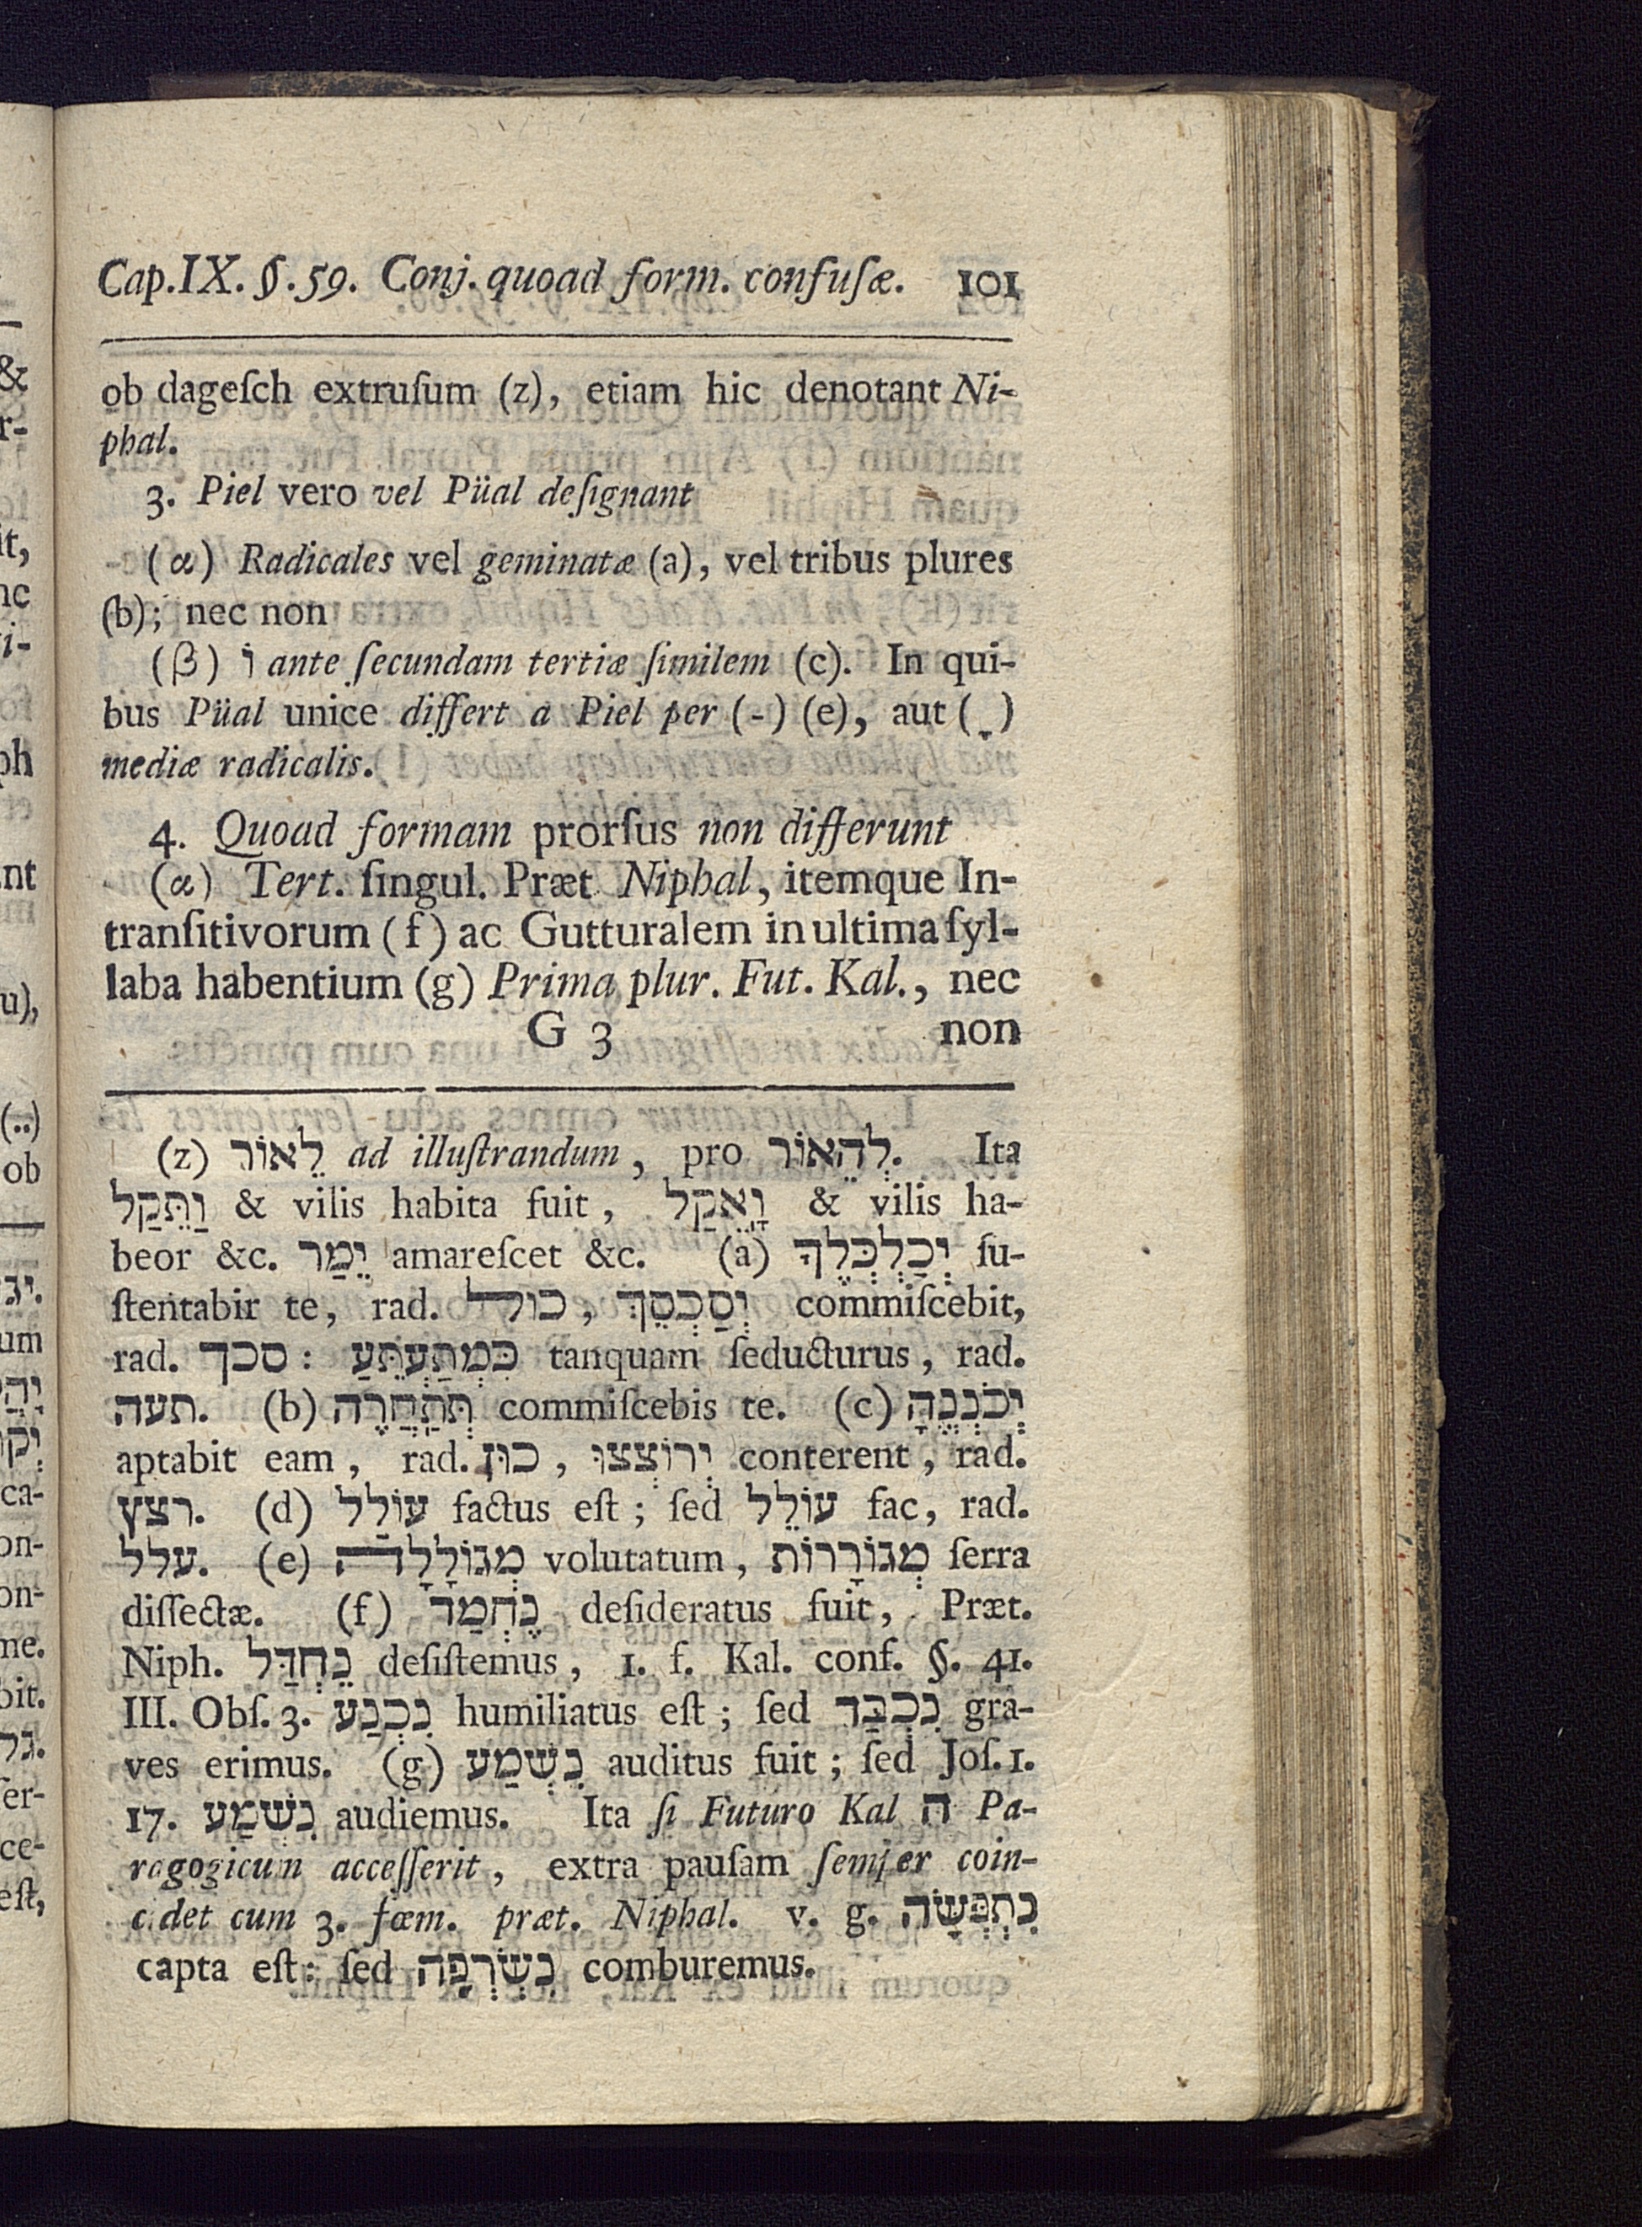 Cap.IX. §.59. Conj. quoad form. confuſæ. 101
ob dageſch extruſum (z), etiam hic denotant Ni-
phal.
3. Piel vero vel Püal deſignant
(α) Radicales vel geminatæ (a), vel tribus plures
(b); nec non
(β) וֹ ante ſecundam tertiæ ſimilem (c). In qui-
bus Püal unice differt a Piel per (-) (e), aut (ָ)
mediæ radicalis.
4. Quoad formam prorſus non differunt
(α) Tert. ſingul. Præt. Niphal, itemque In-
tranſitivorum (f) ac Gutturalem in ultima ſyl-
laba habentium (g) Prima plur. Fut. Kal., nec
G 3 non
(z) לֵאוֹר ad illuſtrandum, pro לְהֵאוֹר. Ita
וַתֵּקַל & vilis habita fuit, וָאֵקַל & vilis ha-
beor &c. יֵמַר amareſcet &c. (a) יְכַלְכְּלֶךָ ſu-
ſtentabit te, rad. כול, יְסַכְסֵךְ commiſcebit,
rad. סכך: כִּמְתַעְתֵּעַ tanquam ſeducturus, rad.
תעה. (b) תְּתַחֲרֶה commiſcebis te. (c) יְכֹנְנֶהָ
aptabit eam, rad. כון, יְרוֹצְצוּ conterent, rad.
רצץ. (d) עוֹלַל factus eſt; ſed עוֹלֵל fac, rad.
עלל. (e) מְגוֹלָלָה volutatum, מְגוֹרָרוֹת ſerra
diſſectæ. (f) נֶחְמַד deſideratus fuit, Præt.
Niph. נֶחְדַּל deſiſtemus, 1. f. Kal. conf. §. 41.
III. Obſ. 3. נִכְנַע humiliatus eſt; ſed נִכְבַּד gra-
ves erimus. (g) נִשְׁמַע auditus fuit; ſed Joſ. 1.
17. נִשְׁמַע audiemus. Ita ſi Futuro Kal ה Pa-
ragogicum acceſſerit, extra pauſam ſemper coin-
cidet cum 3. fœm. præt. Niphal. v. g. נִתְפְּשָׂה
capta eſt: ſed נִשְׂרְפָה comburemus.